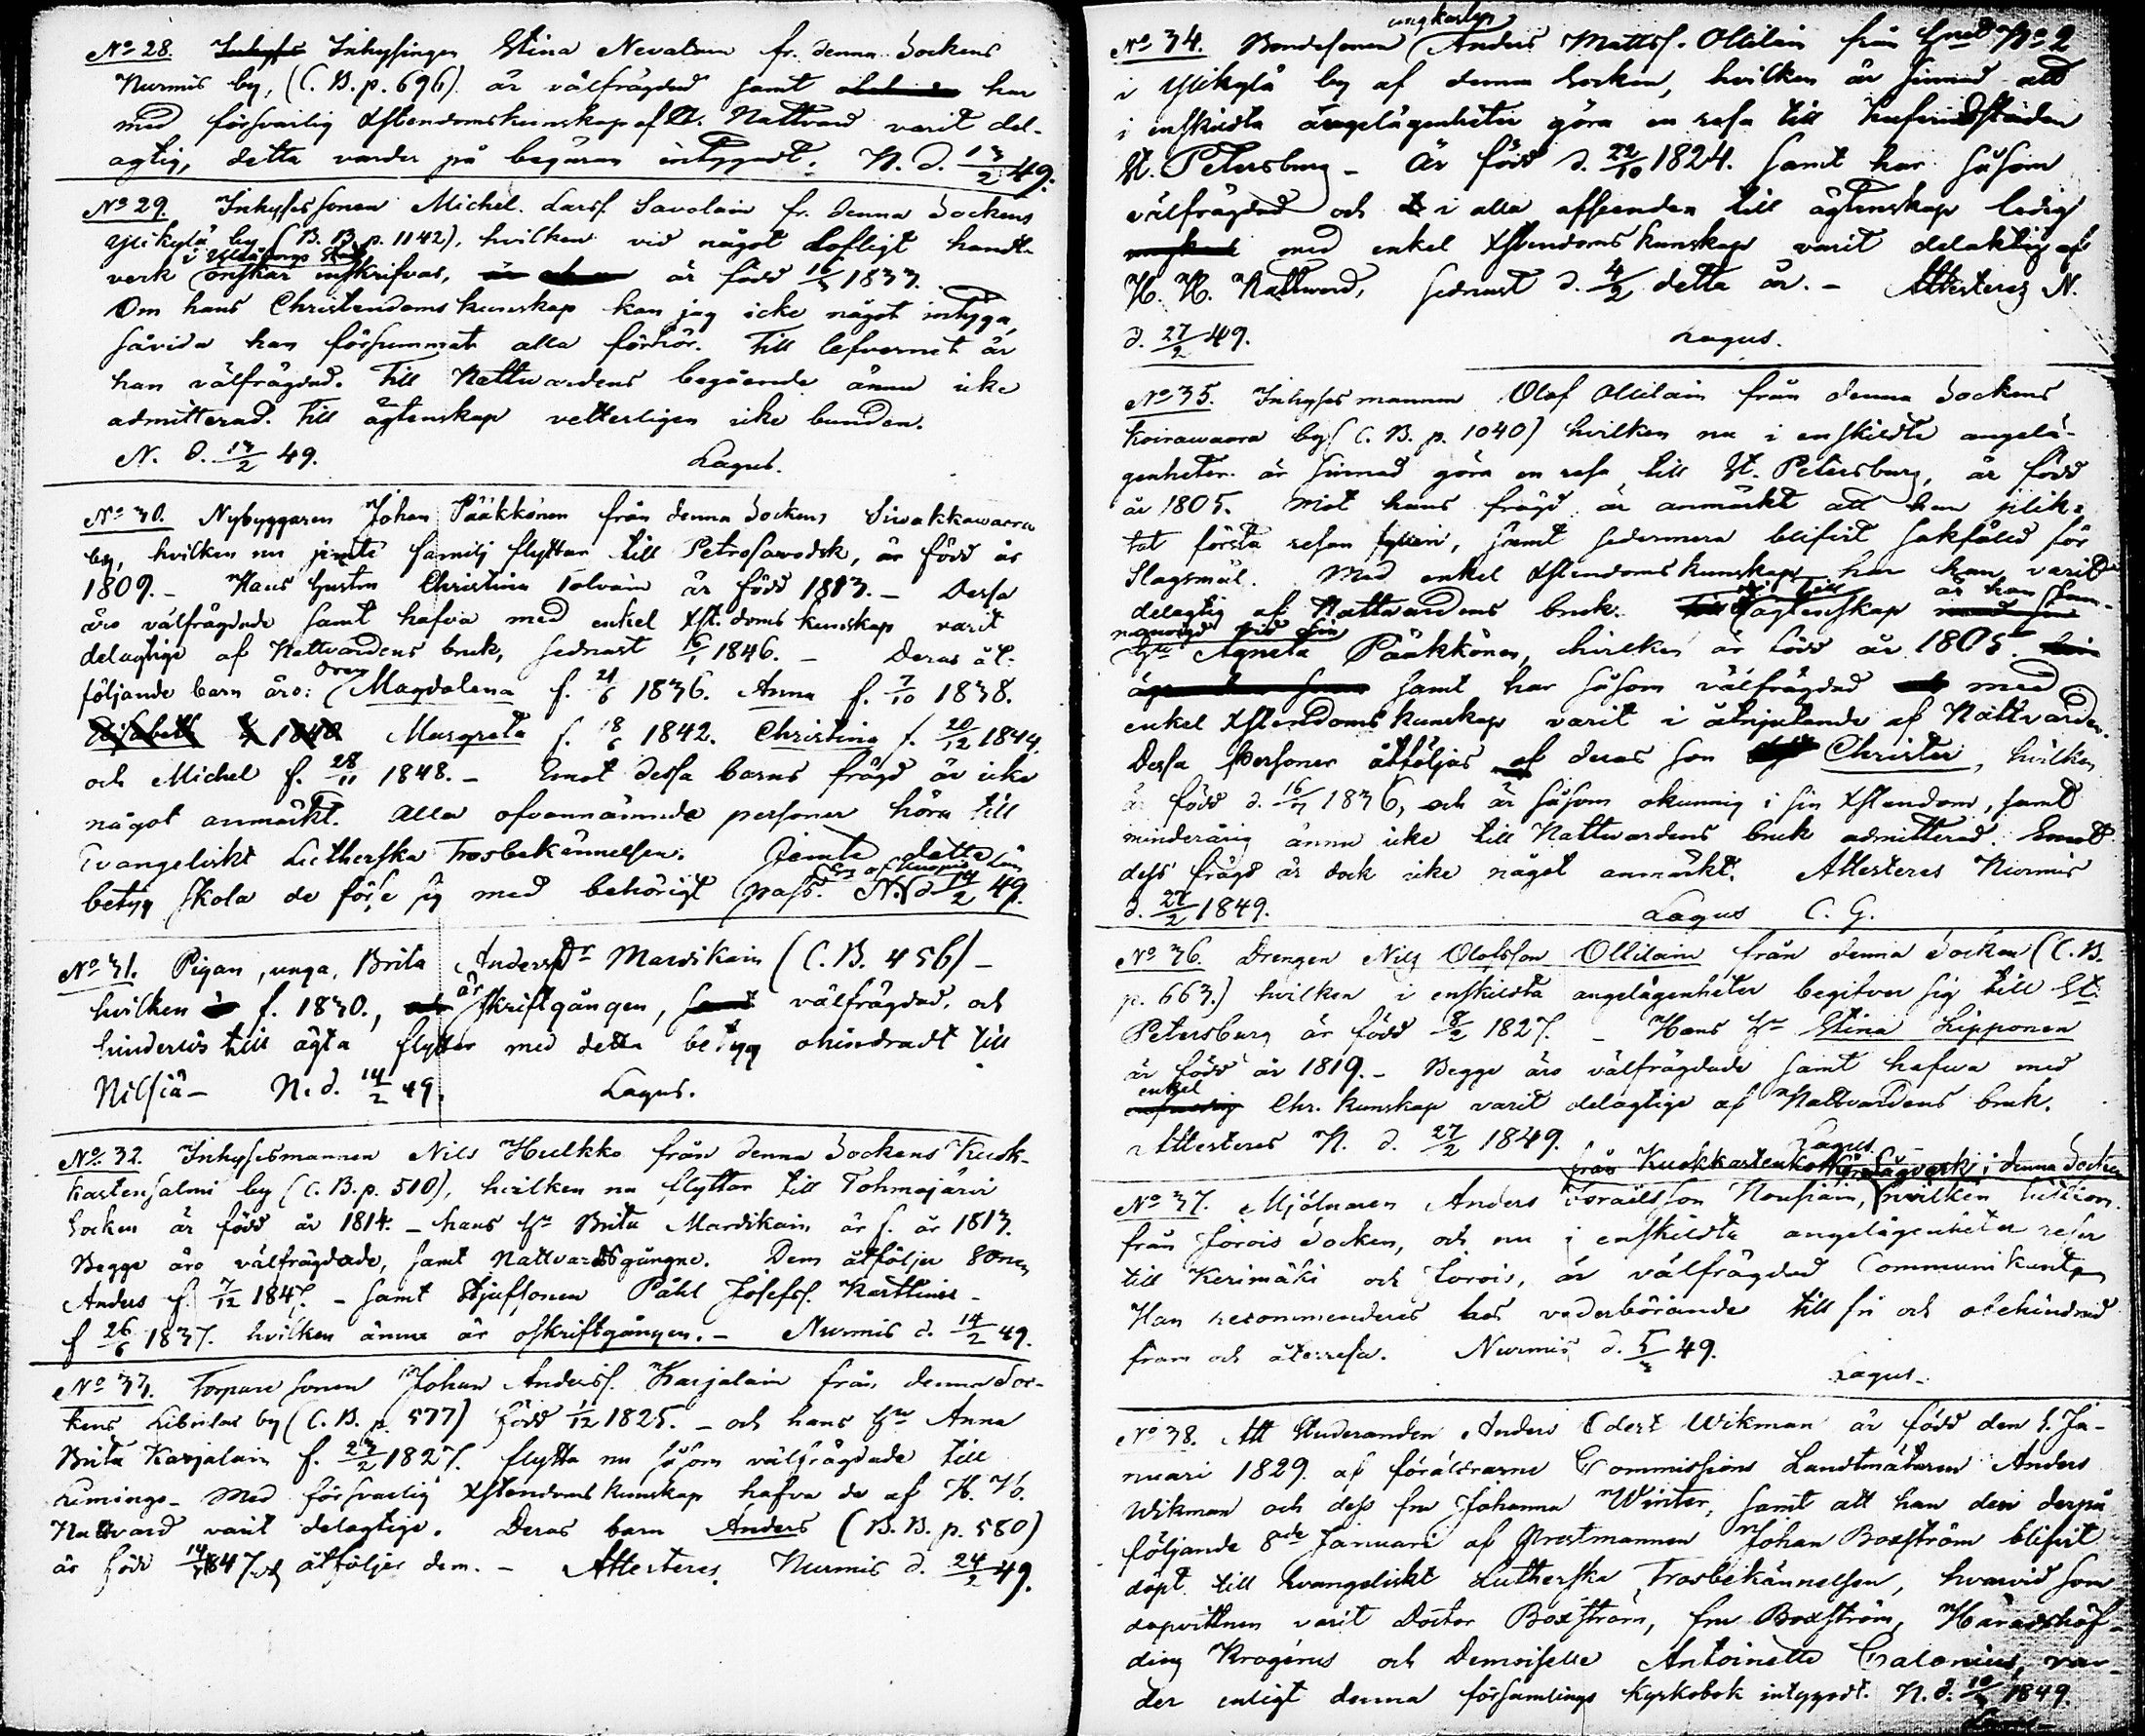 No 28. Inhysingen Stina Nevalain fr. denna Sockens
Nurmis by, (C. B. p. 696) är välfrägdad samt har
med försvarlig Xstendomskunskap af H. Nattvard varit del-
agtig, detta varder på begäran intygadt. N. d. 13/2 49.
No 29. Inhysessonen Michel Larss. Savolain fr. denna Sockens
Ylikylä by (B. B. p. 1142), hvilken vid något lofligt handt-
verk i Uleåborgs Stad önskar inskrifvas, är född 16/5 1833.
Om hans Christendoms kunskap kan jag icke något intyga,
såvida han försummat alla förhör. Till lefvernet är
han välfrägdad. Till Nattvardens begående ännu icke
admitterad. Till ägtenskap vetterligen icke bunden.
N. d. 13/2 49. Lagus.
No 30. Nybyggaren Johan Pääkkönen från denna Sockens Siwakkawaara
by, hvilken nu jemte familj flyttar till Petrosawodsk, är född år
1809. - Hans hustru Christina Tolvain är född 1813. - Dessa
äro välfrägdade samt hafva med enkel Xst.doms kunskap varit
delagtige af Nattvardens bruk, sednast 16/1 1846. - Deras åt-
följande barn äro: Magdalena f. 21/6 1836. Anna f. 7/10 1838.
Elisabeth 1840 Margreta f. 18/6 1842. Christina f. 20/12 1844.
och Michel f. 28/11 1848. - Emot dessa barns frägd är icke
något anmärkt. Alla ofvannämnde personer höra till
Evangeliskt Lutherska Trosbekännelsen. Jemte detta
betyg skola de förse sig med behörigt pass. N. d 14/2 49.
No 31. Pigan, unga, Brita Andersdr Mardikain (C. B. 456) -
hvilken f. 1830., är skriftgången, välfrägdad, och
hinderlös till ägta flyttar med detta betyg ohindradt till
Nilsiä - N. d. 14/2 49. Lagus.
No. 32. Inhysesmannen Nils Hulkko från denna Sockens Kuok-
kastensalmi by (C. B. p. 510), hvilken nu flyttar till Tohmajärvi
Socken är född år 1814. - hans hu Brita Mardikain är f. år 1813.
Begge äro välfrägdade, samt Nattvardsgångne. Dem åtföljer Sonen
Anders f. 7/12 1847. - samt Stjufsonen Påhl Josefss. Karttinen -
f 26/6 1837. hvilken ännu är oskriftgången. - Nurmis d. 14/2 49.
No 33. Torpare sonen Johan Anderss. Karjalain från denna Soc-
kens by (C. B. p. 577) född 1/12 1825. - och hans hu Anna
Brita Karjalain f. 23/2 1827. flytta nu såsom välfrägdade till
Kiminge - Med försvarlig Xstendoms kunskap hafva de af H. H.
Nattvard varit delagtige. Deras barn Anders (B. B. p. 580)
är född 1847 och åtföljer dem. - Attesteres. Nurmis d. 24/2 49.
No 34. Bondesonen ungkarlen Anders Mattss. Ollilain från hmt No 2
i Ylikylä by af denna Socken, hvilken är sinnad att
i enskildta angelägenheter göra en resa till hufvudstaden
St. Petersburg - Är född d. 22/10 1824. samt har såsom
välfrägdad och i alla afseenden till ägtenskap ledig
med enkel Xstendoms kunskap varit delaktig af
H. H. Nattvard, sednast d. 4/2 detta år. - Attesteres N.
d. 27/2 49. Lagus.
No 35. Inhyses mannen Olof Ollilain från denna Sockens
Koirawaara by (C. B. p. 1040) hvilken nu i enskildte angelä-
genheter är sinnad göra en resa till St. Petersburg, är född
år 1805. Mot hans frägd är anmärkt att han plik-
tat första resan fylleri, samt sedermera blifvit sakfälld för
Slagsmål. Med enkel Xstendoms kunskap har han varit
delagtig af Nattvardens bruk. Till ägtenskap är han
hu Agneta Pääkkönen, hvilken är född år 1805
samt har såsom välfrägdad med
enkel Xstendoms kunskap varit i åtnjutande af Nattvarden.
Dessa Personer åtföljas af deras son Christer, hvilken
är född d. 16/7 1836, och är såsom okunnig i sin Xstendom, samt
minderårig ännu icke till Nattvardens bruk admitterad. Emot
dess frägd är dock icke något anmärkt. Attesteres Nurmis
d. 27/2 1849. Lagus C. G.
No 36. Drengen Nils Olofsson Ollilain från denna Socken (C. B.
p. 663.) hvilken i enskildta angelägenheter begifver sig till St.
Petersburg är född 8/2 1827. - Hans hu Stina Lipponen
är född år 1819. - Begge äro välfrägdade samt hafva med
enkel Chr. kunskap varit delagtige af Nattvardens bruk.
Attesteres N. d. 27/2 1849. Lagus.
från Kuokkastenkoski Sågverk i denna Socken
No 37. Mjölnaren Anders Israelsson Nousiain, hvilken
från Jorois Socken, och nu i enskildta angelägenheter reser
till Kerimäki och Jorois, är välfrägdad Communikant,
Han recommenderes hos vederbörande till fri och obehindrad
fram och återresa. Nurmis d. 5/3 49.
Lagus.
No 38. Att Studeranden Anders Edert Wikman är född den 2. Ja-
nuari 1829. af föräldrarne Commissions Landtmätaren Anders
Wikman och dess fru Johanna Winter, samt att han den derpå
följande 8de Januari af Prostmannen Johan Boxström blifvit
döpt till Evangeliskt Lutherska Trosbekännelsen, hvarvid som
dopvittnen varit Doctor Boxström, fru Boxström, Häradshöf-
ding Krogerus och Demoiselle Antoinette Calonius, var-
der enligt denna församlings Kyrkobok intygadt. N. d. 10/3 1849.